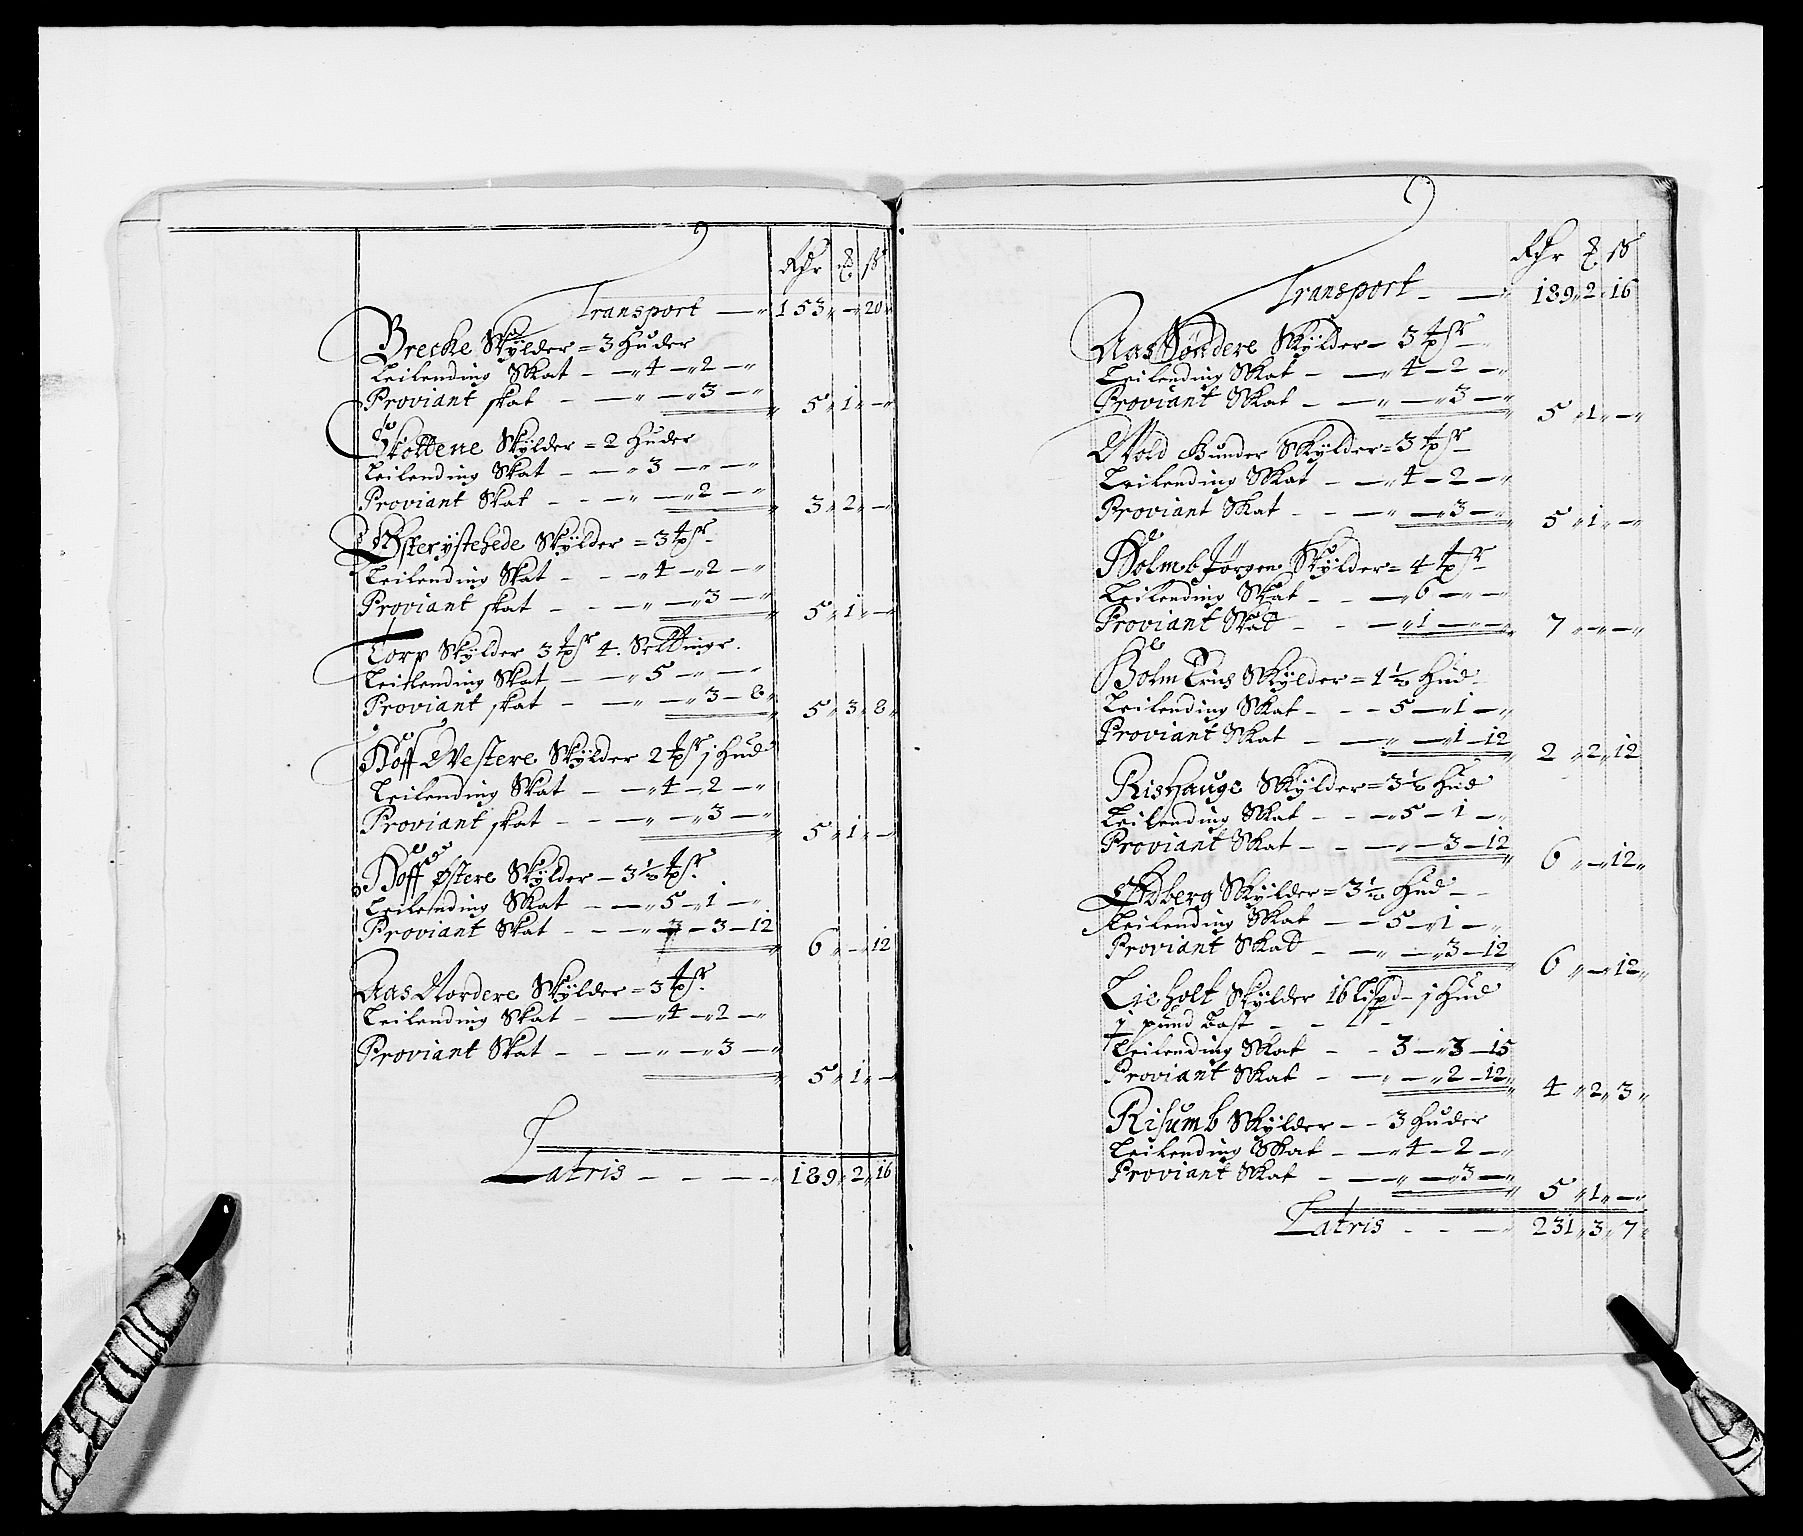 Rdr
Transport — 153 " — " 20 "
Brecke Skÿlder = 3 Huder
Leilending Skat — — " 4 — " 2 — "
Proviant skat — — " — " 3 — "
5 " 1 " — "
Skottene Skÿlder = 2 Huder
Leilending Skat — — " 3 — " — "
Proviant Skat — — " — " 2 — "
3 " 2 " — "
Skÿlder = 3
Leilending Skat — — " 4 — " 2 — "
Proviant skat — — " — " 3 — "
5 " 1 " — "
Torp Skÿlder 3 4. Settingr.
Leilending Skat — — " 5 — " — "
Proviant skat — — " — " 3 — 8 "
5 " 3 " 8 "
Hoff Westere Skÿlder 2 j Hud
Leilending Skat — — " 4 — 2 — "
Proviant skat — — " — " 3 — "
5 " 1 " — "
Hoff Østere Skÿlder — 3 ½
Leilending Skat — — " 5 — " 1 — "
Proviant Skat — — " — 3 — 12
6 " — " 12
Aas Nordere Skÿlder = 3
Leilending Skat — — " 4 — " 2 — "
Proviant Skat — — " — " 3 — "
5 " 1 " —
Latris — — — 189 " 2 " 16
Rdr
Transport — — 189 " 2 " 16
Aas Søndere Skÿlder — 3
Leilending Skat — — " 4 — 2 — "
Proviant Skat — — " — " 3 — "
5 " 1 " — "
Wold Gunder Skÿlder = 3
Leilending Skat — — " 4 — 2 — "
Proviant Skat — — " — " 3 — "
5 " 1 " — "
Holmb Jørgen Skÿlder = 4
Leilending Skat — — " 6 — " — "
Proviant Skat — — " 1 — " — "
7 " — " — "
Holm Skÿlder = 1 ½ Hud
Leilending Skat — — 5 — " 1 — "
Proviant Skat — — " — " 1 — 12
2 " 2 " 12
Rishauge Skÿlder = 3 ½ Hud
Leilending Skat — — " 5 — 1 — "
Proviant Skat — — " — 3 — 12
6 " — " 12 "
Ødberg Skÿlder = 3 ½ Hud —
Leilending Skat — — 5 — " 1 — "
Proviant Skat — — " — " 3 — 12
6 " — " 12 "
Lie holt Skÿlder 16 lispd — j Hud
j pund Bast — —
Leilending Skat — — 3 — " 3 — 15
Proviant Skat — — " — " 2 — 12 "
4 " 2 " 3 "
Risumb Skÿlder — — 3 Huder
Leilending Skat — — " 4 — 2 — "
Proviant Skat — — " — " 3 — "
5 " 1 " — "
Latris — — — 231 " 3 " 7 "